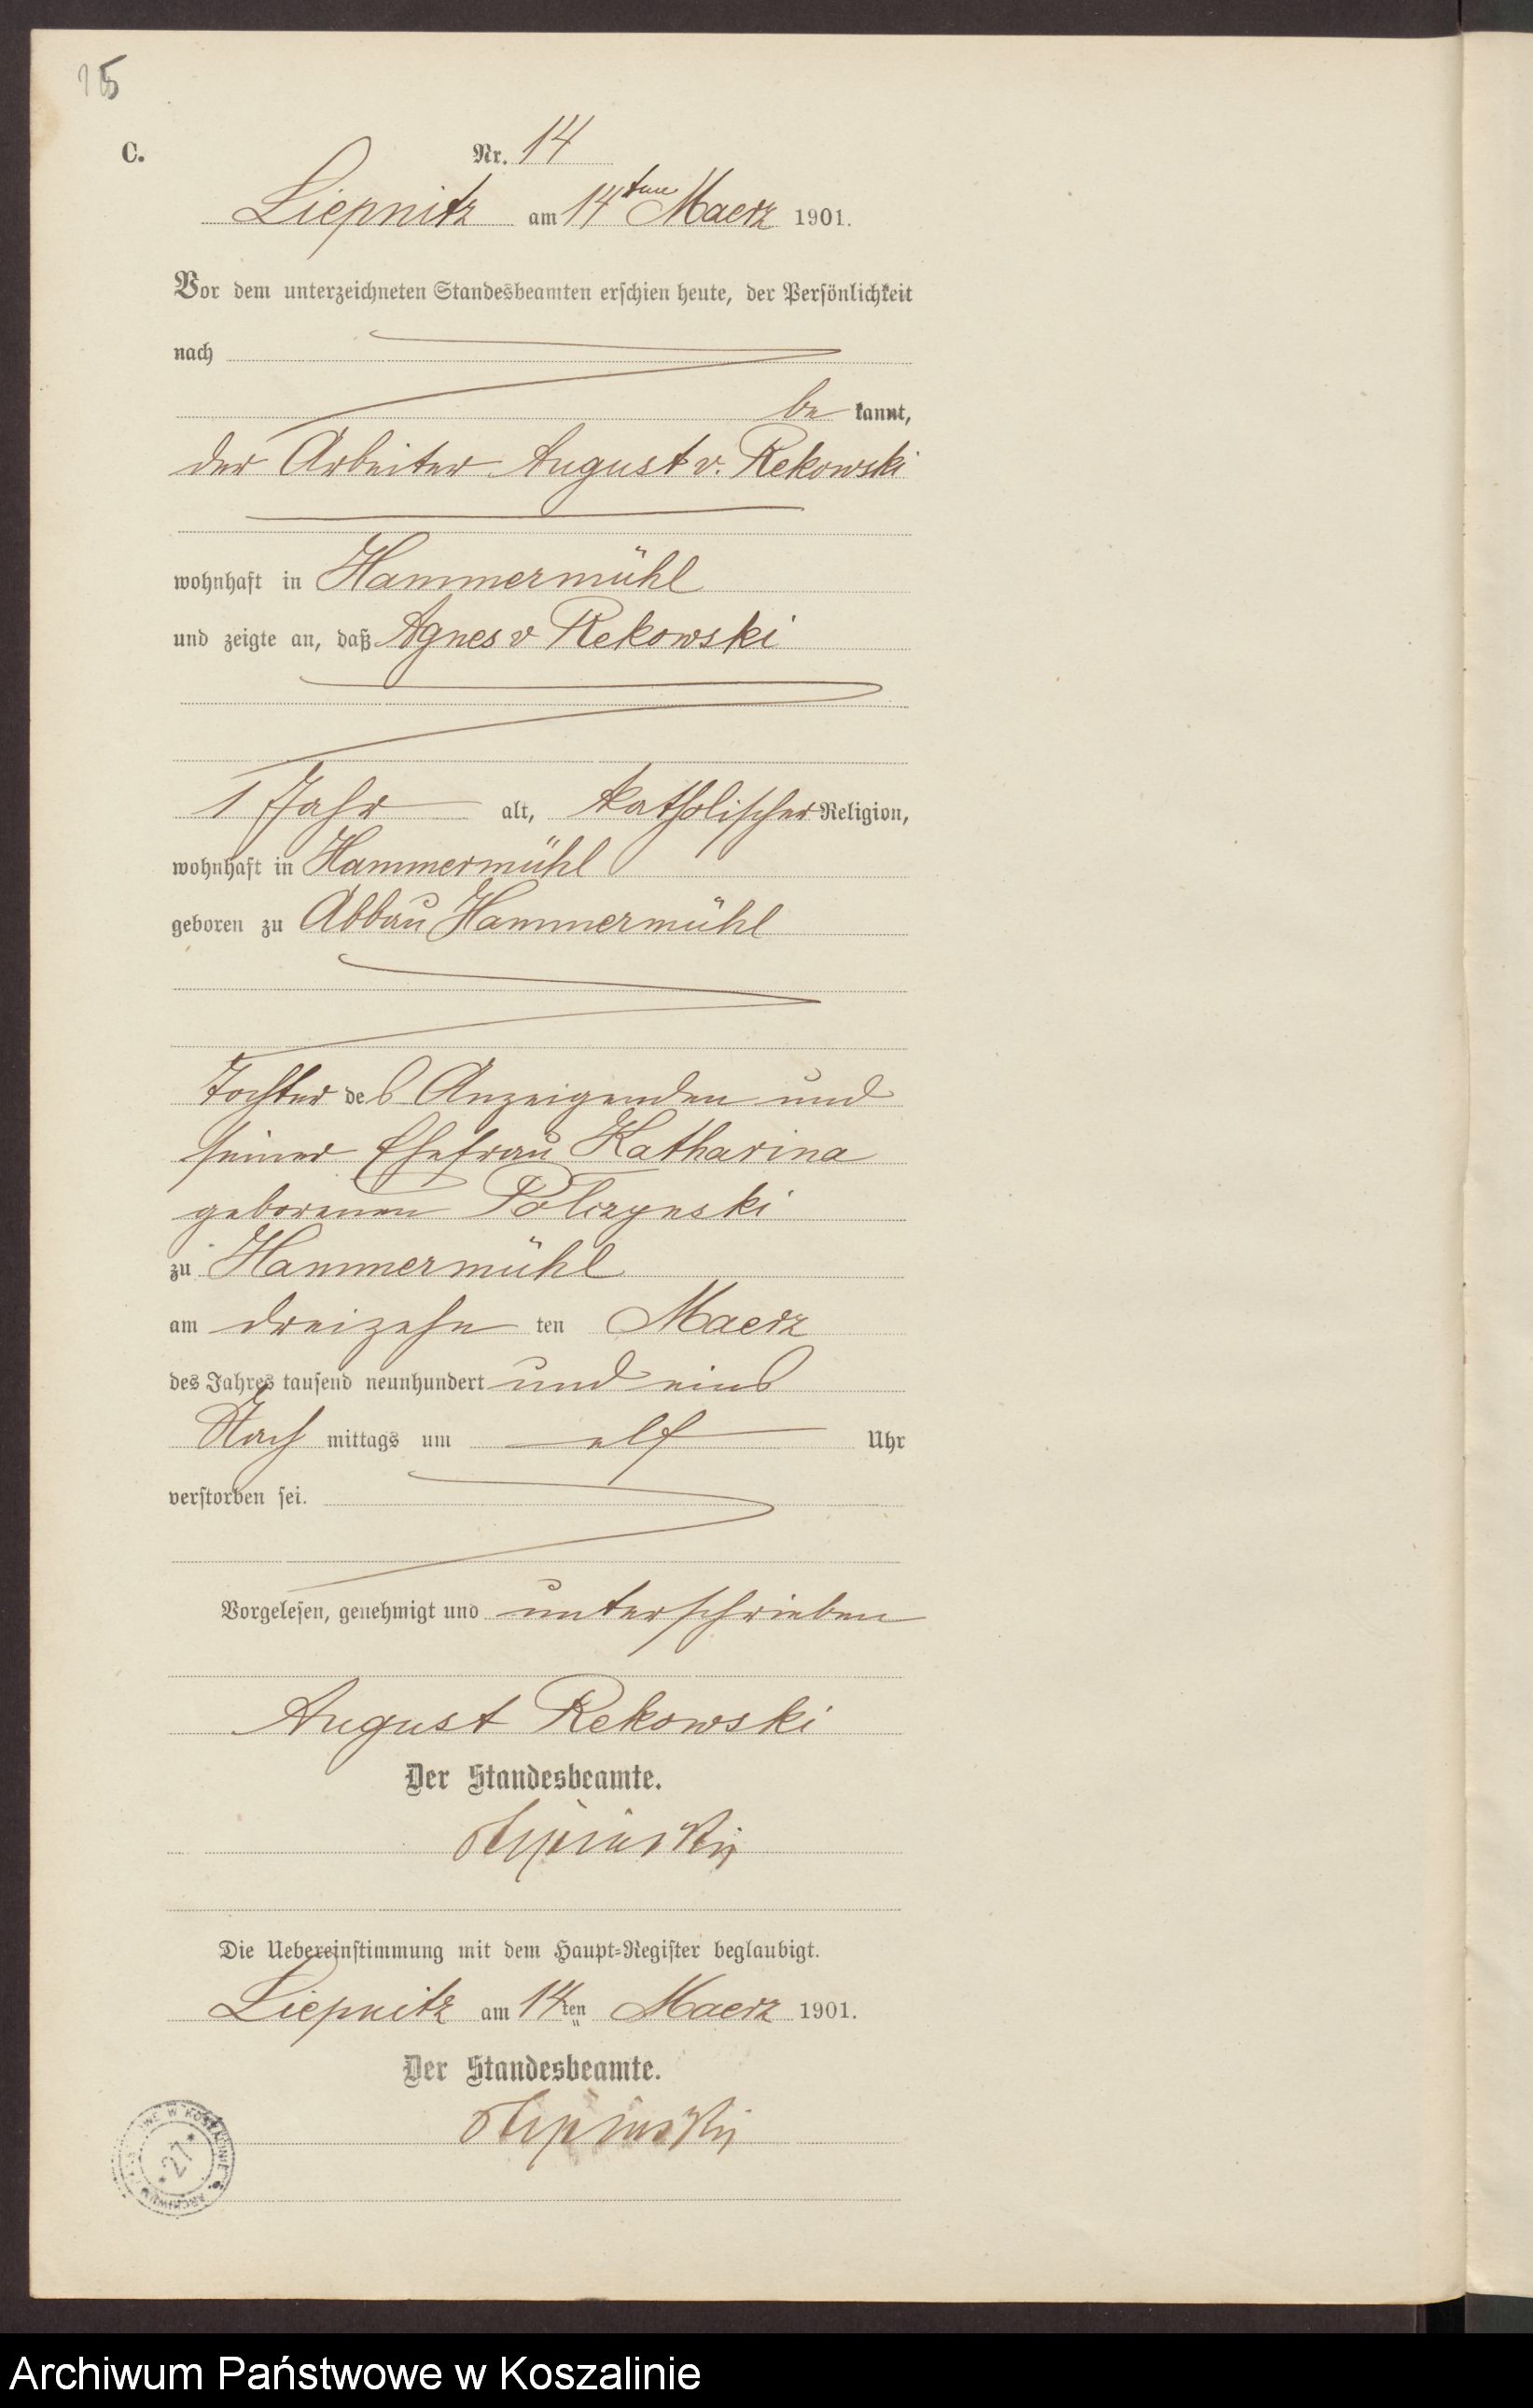 15
C.
Nr. 14
Liepnitz am 14ten Maerz 1901.
Vor dem unterzeichneten Standesbeamten erschien heute, der Persönlichkeit
nach
be kannt,
der Arbeiter August v. Rekowski
wohnhaft in Hammermühl
und zeigte an, daß Agnes v Rekowski
1 Jahr alt, katholischer Religion,
wohnhaft in Hammermühl
geboren zu Abbau Hammermühl
Tochter des Anzeigenden und
seiner Ehefrau Katharina
geborenen Polczynski
zu Hammermühl
am dreizehn ten Maerz
des Jahres tausend neunhundert und eins
Nach mittags um elf Uhr
verstorben sei.
Vorgelesen, genehmigt und unterschrieben
August Rekowski
Der Standesbeamte.
Die Uebereinstimmung mit dem Haupt=Register beglaubigt.
Liepnitz am 14ten Maerz 1901.
Der Standesbeamte.
27
Archiwum Państwowe w Koszalinie